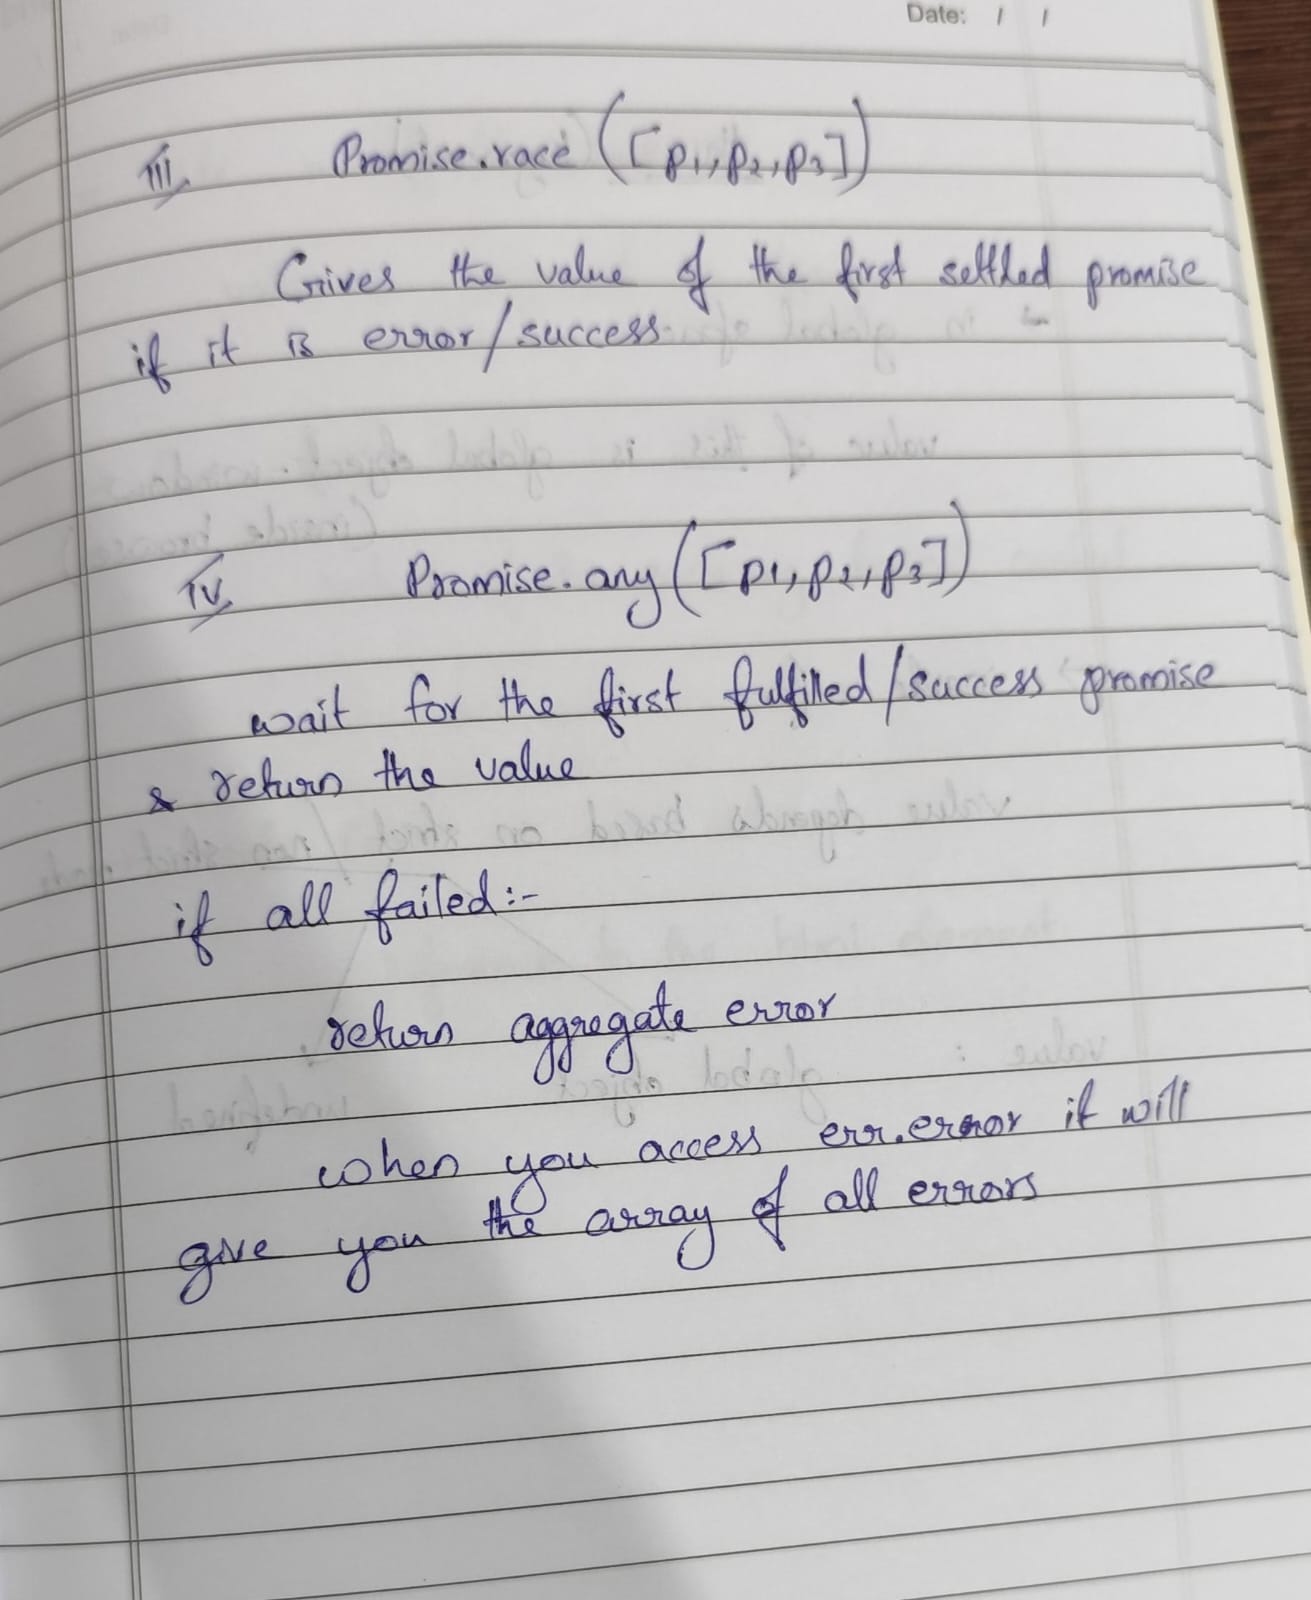 Date: / /
III Promise.race ([p1, p2, p3])
Gives the value of the first settled promise
if it is error/success
IV Promise.any ([p1, p2, p3])
wait for the first fulfilled/success promise
& return the value
if all failed:-
return aggregate error
when you access err.error it will
give you the array of all errors